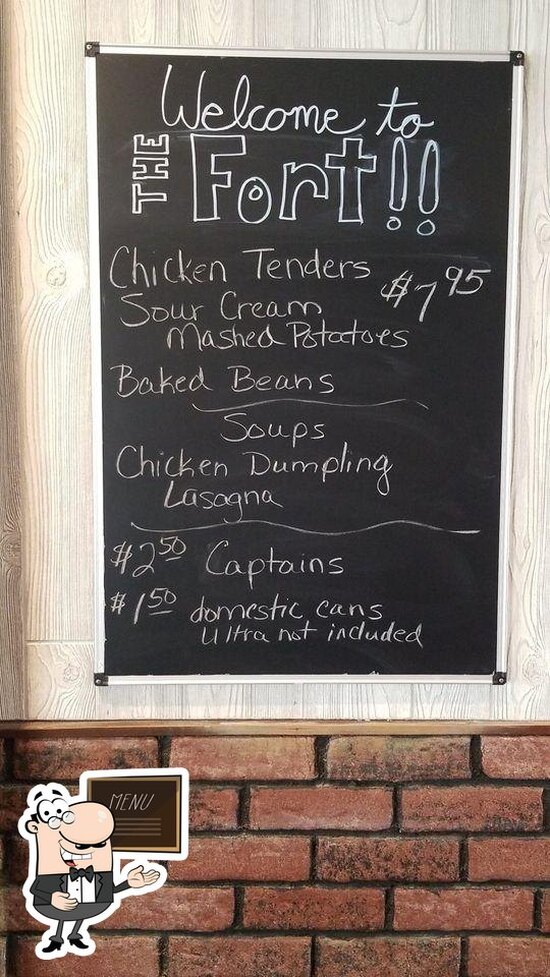 Welcome to
THE Fort!!
Chicken Tenders $7 95
Sour Cream
Mashed Potatoes
Baked Beans
Soups
Chicken Dumpling
Lasagna
$2 50 Captains
$1 50 domestic cans
Ultra not included
MENU